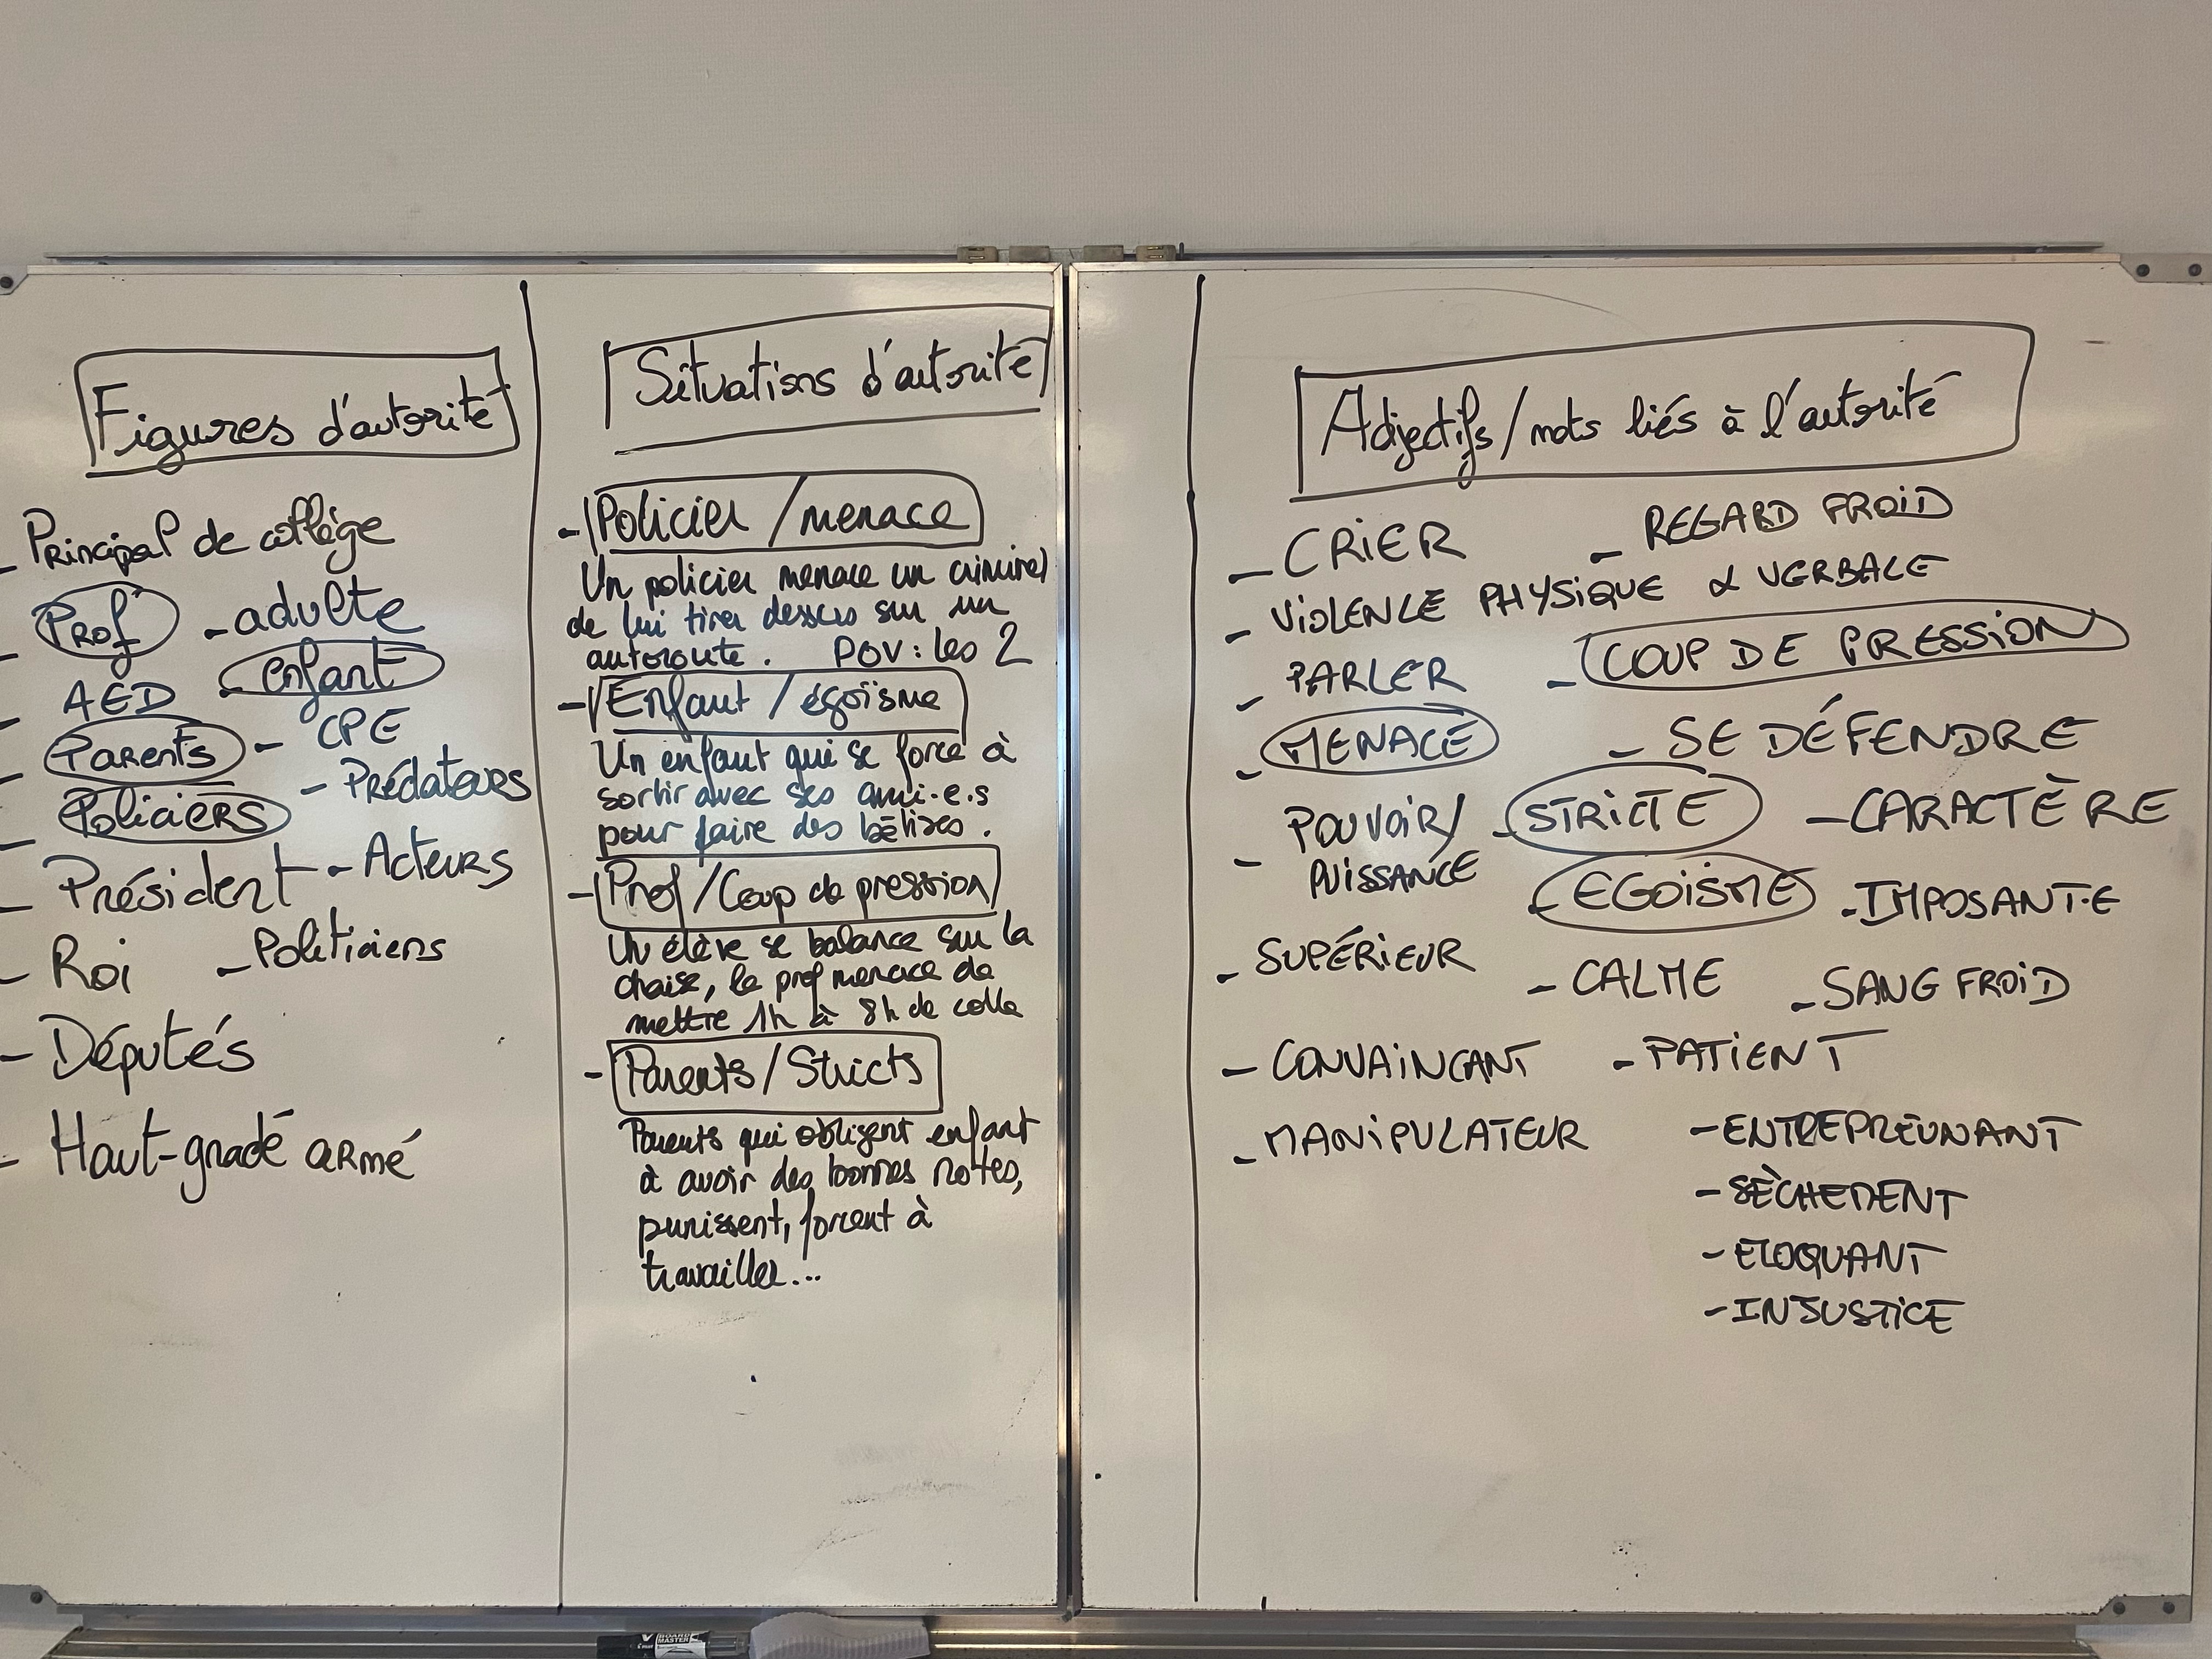 Figures d'autorité
- Principal de collège
- Prof
- adulte
- AED
- enfant
- Parents
- CPE
- Policiers
- Prédateurs
- Président
- Acteurs
- Roi
- Politiciens
- Députés
- Haut-gradé armé
Situations d'autorité
- Policier / menace
Un policier menace un criminel
de lui tirer dessus sur un
autoroute. POV : les 2
- Enfant / égoïsme
Un enfant qui se force à
sortir avec ses ami.e.s
pour faire des bêtises.
- Prof / Coup de pression
Un élève se balance sur la
chaise, le prof menace de
mettre 1h à 8h de colle
- Parents / Stricts
Parents qui obligent enfant
à avoir des bonnes notes,
punissent, forcent à
travailler...
Adjectifs / mots liés à l'autorité
- CRIER
- REGARD FROID
- VIOLENCE PHYSIQUE & VERBALE
- PARLER
- COUP DE PRESSION
- MENACE
- SE DÉFENDRE
- POUVOIR /
PUISSANCE
- STRICTE
- CARACTÈRE
- EGOÏSME
- IMPOSANT·E
- SUPÉRIEUR
- CALME
- SANG FROID
- CONVAINCANT
- PATIENT
- MANIPULATEUR
- ENTREPREUNANT
- SÈCHEMENT
- ELOQUANT
- INJUSTICE
BOARD
MASTER